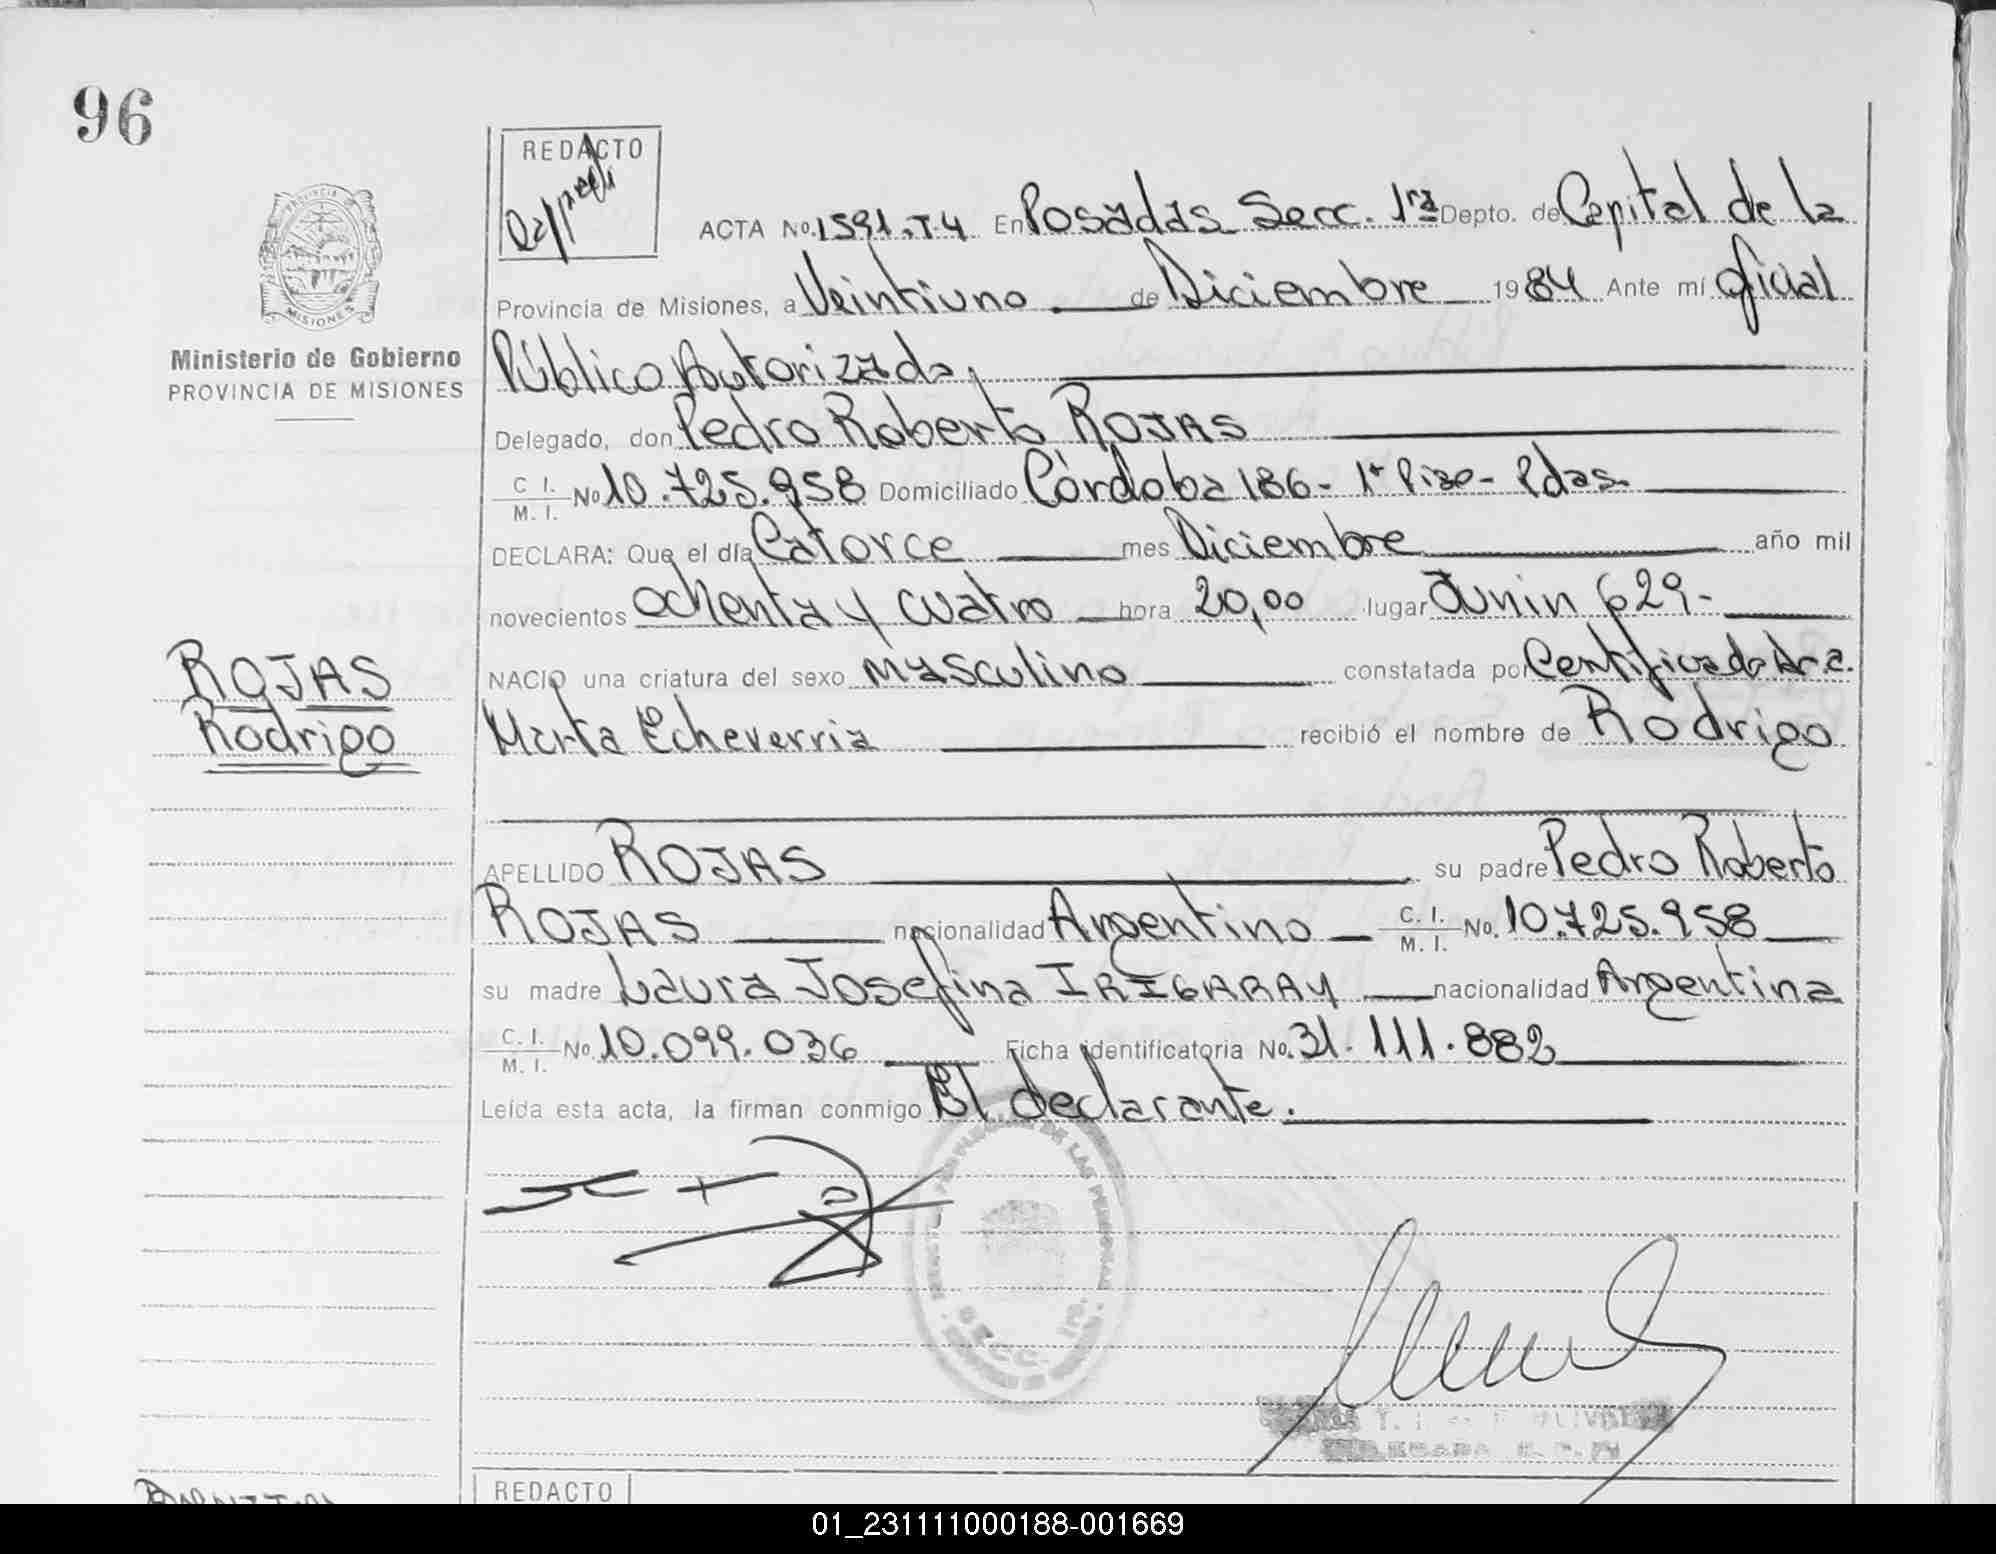 96
REDACTO
PROVINCIA
MISIONES
Ministerio de Gobierno
PROVINCIA DE MISIONES
ACTA No. 1591.T.4 En Posadas Secc. 1ra Depto. de Capital de la
Provincia de Misiones, a Veintiuno de Diciembre 1984 Ante mí Oficial
Público Autorizado,
Delegado, don Pedro Roberto ROJAS
C I.
M. I. No 10.725.958 Domiciliado Córdoba 186- 1r Piso- Pdas.
DECLARA: Que el día Catorce mes Diciembre año mil
novecientos ochenta y cuatro hora 20,00 lugar Junin 629-
NACIO una criatura del sexo Masculino constatada por Certificado Dra.
Marta Echeverria recibió el nombre de Rodrigo
ROJAS
Rodrigo
APELLIDO ROJAS su padre Pedro Roberto
ROJAS nacionalidad Argentino C. I.
M. I. No. 10.725.958
su madre Laura Josefina IRIGARAY nacionalidad Argentina
C. I.
M. I. No. 10.099.036 Ficha identificatoria No. 31.111.882
Leída esta acta, la firman conmigo El declarante.
REDACTO
01_231111000188-001669